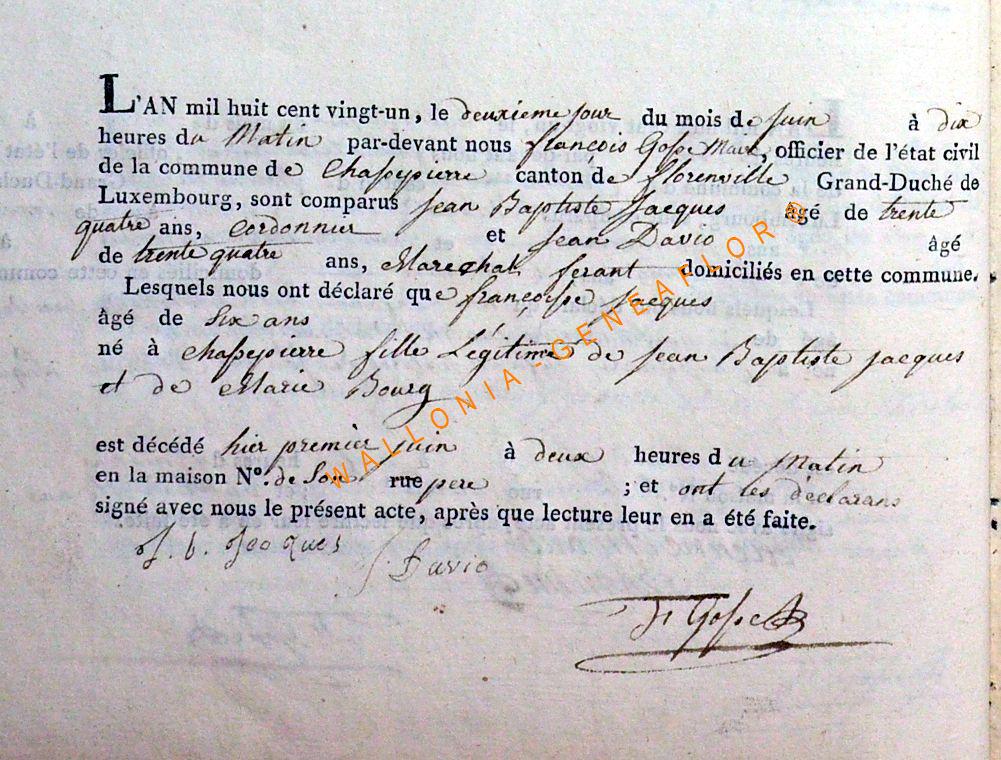 L'AN mil huit cent vingt-un, le deuxieme jour du mois de juin à dix
heures du Matin par-devant nous françois Gosse Maire, officier de l'état civil
de la commune de Chassepierre canton de florenville Grand-Duché de
Luxembourg, sont comparus Jean Baptiste Jacques âgé de trente
quatre ans, Cordonnier et Jean Davio âgé
de trente quatre ans, Marechal ferant domiciliés en cette commune.
Lesquels nous ont déclaré que françoise Jacques
âgé de Six ans
né à Chassepierre fille Légitime de Jean Baptiste jacques
et de Marie Bourg
est décédé hier premier juin à deux heures du Matin
en la maison N°. de Son rue pere ; et ont les declarans
signé avec nous le présent acte, après que lecture leur en a été faite.
J. b. Jacques J Davio
F Gosse
WALLONIA-GENEAFLOR D